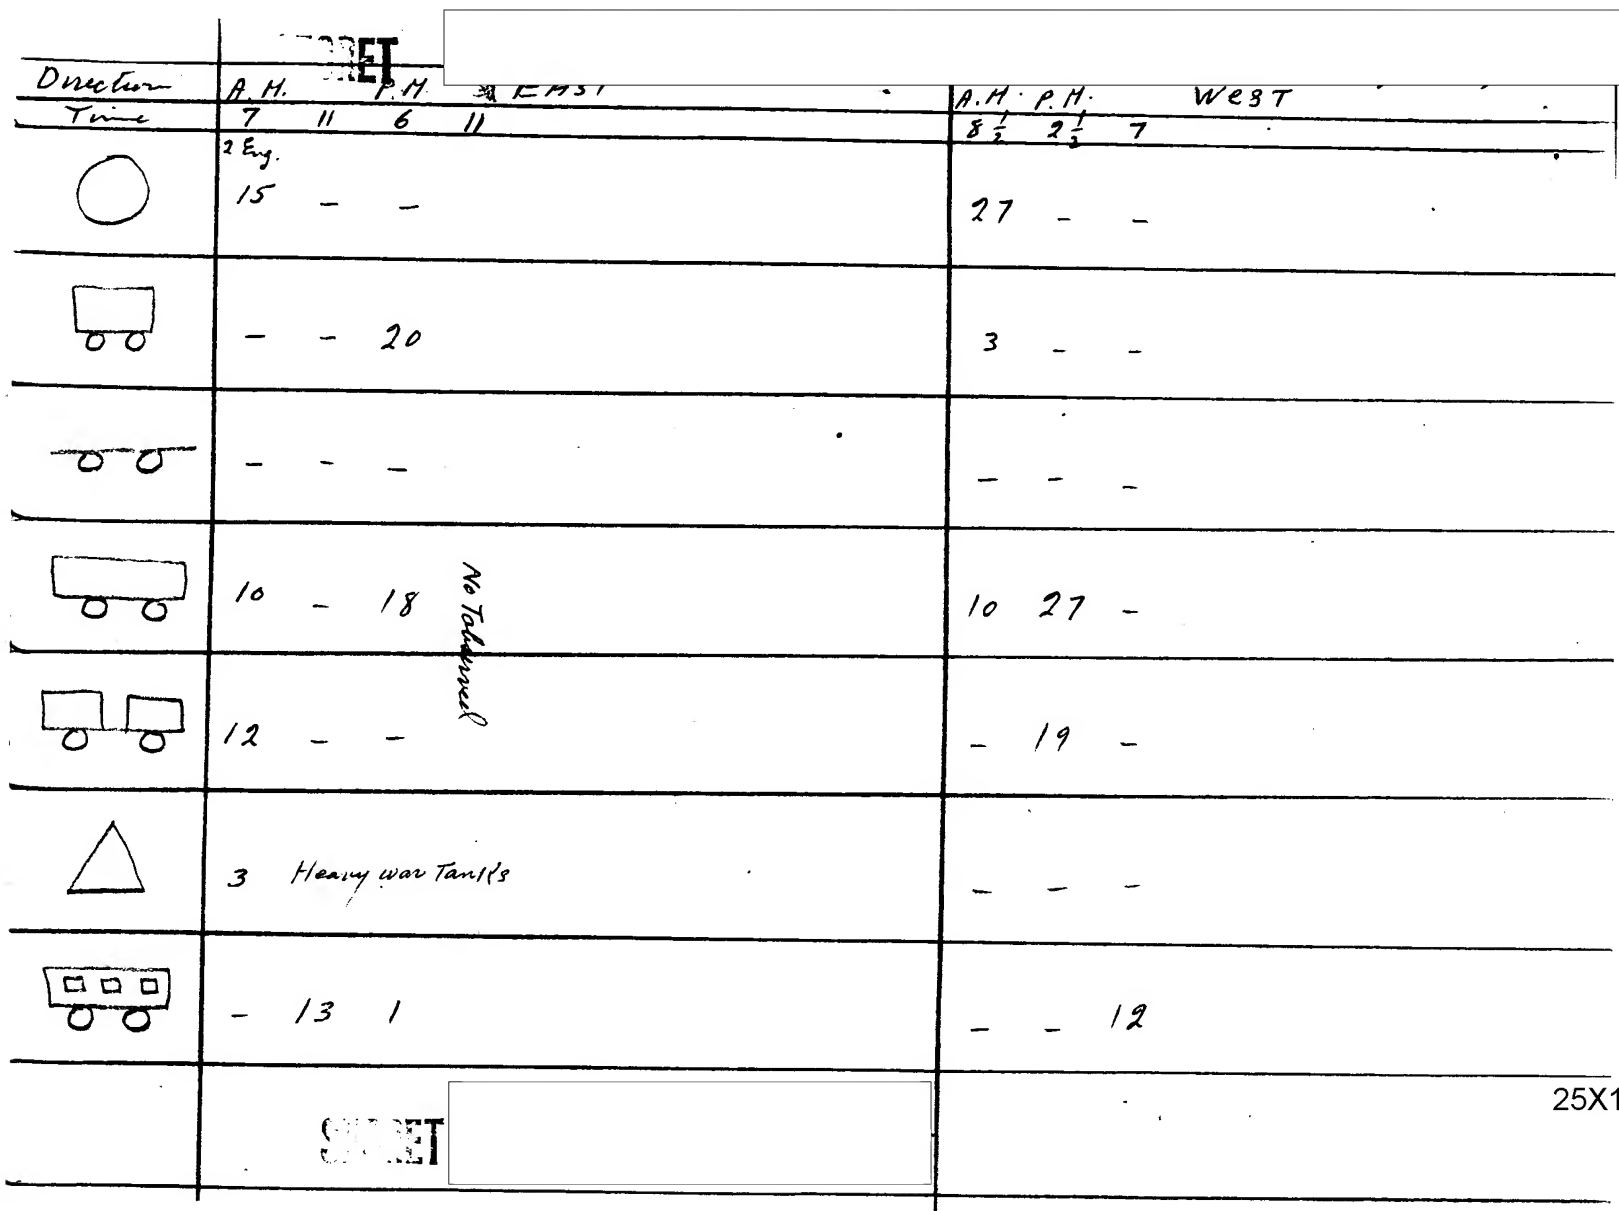 SECRET
Direction A.M. P.M. EAST A.M. P.M. West
Time 7 11 6 11 8 1/2 2 1/2 7
2 Eng.
15 - - 27 - -
- - 20 3 - -
- - - - - -
10 - 18 10 27 -
No
12 - - - 19 -
3 Heavy war Tanks - - -
- 13 1 - - 12
25X1
SECRET